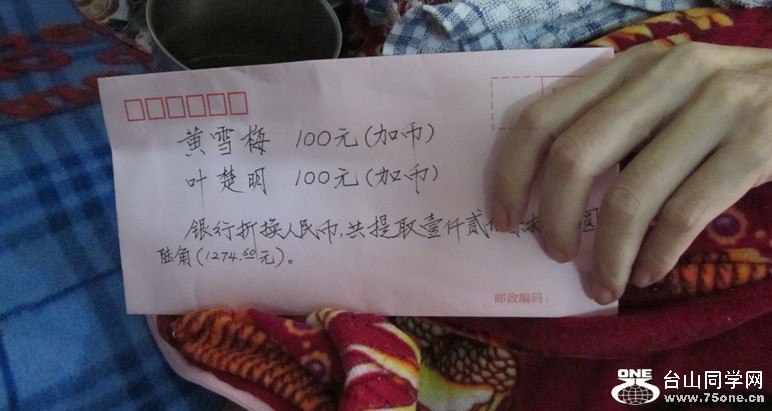 黄雪梅 100元(加币)
叶楚明 100元(加币)
银行折换人民币,共提取壹仟贰
陆角(1274.60元)。
邮政编码:
ONE
台山同学网
www.75one.cn